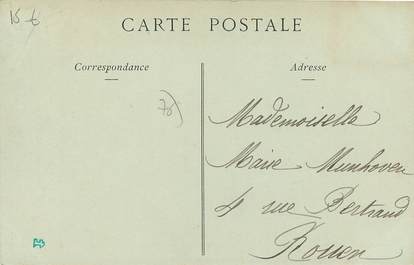 15 €
CARTE POSTALE
Correspondance
Adresse
78)
Mademoiselle
Marie Munhoven
4 rue Bertrand
Rouen